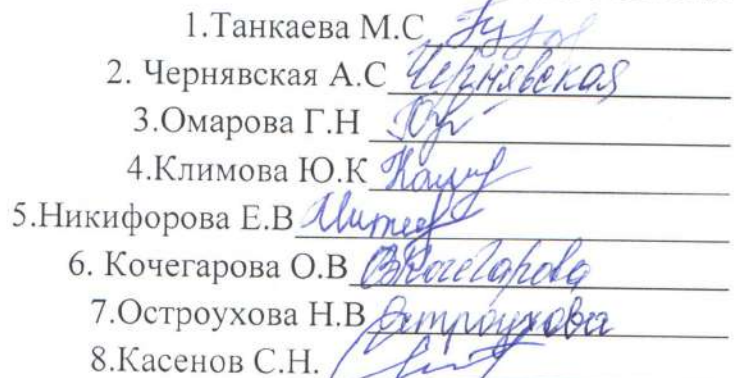 1.Танкаева М.С
2. Чернявская А.С Чернявская
3.Омарова Г.Н
4.Климова Ю.К
5.Никифорова Е.В
6. Кочегарова О.В ОКочегарова
7.Остроухова Н.В Остроухова
8.Касенов С.Н.